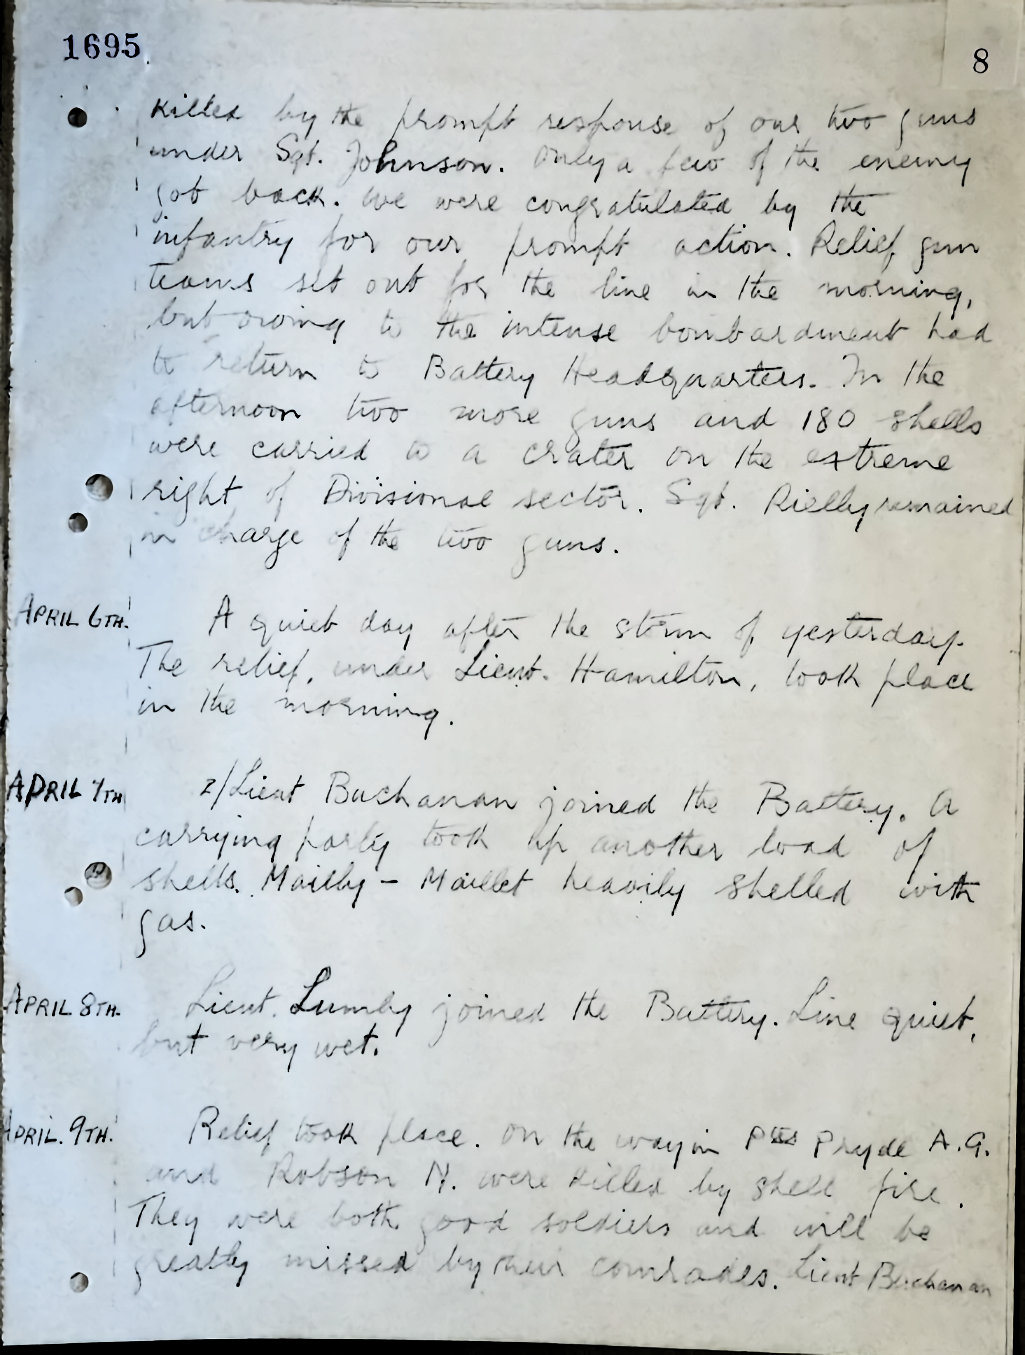 1695. 8
killed by the prompt response of our two guns
under Sgt. Johnson. Only a few of the enemy
got back. We were congratulated by the
infantry for our prompt action. Relief gun
teams set out for the line in the morning,
but owing to the intense bombardment had
to return to Battery Headquarters. In the
afternoon two more guns and 180 shells
were carried to a crater on the extreme
right of Divisional sector. Sgt. Rielly remained
in charge of the two guns.
APRIL 6TH. A quiet day after the storm of yesterday.
The relief, under Lieut. Hamilton, took place
in the morning.
APRIL 7TH 2/Lieut Buchanan joined the Battery. A
carrying party took up another load of
shells. Mailly - Maillet heavily shelled with
gas.
APRIL 8TH. Lieut. Lumby joined the Battery. Line quiet,
but very wet.
APRIL. 9TH. Relief took place. On the way in Ptes Pryde A.G.
and Robson N. were killed by shell fire.
They were both good soldiers and will be
greatly missed by their comrades. Lieut Buchanan